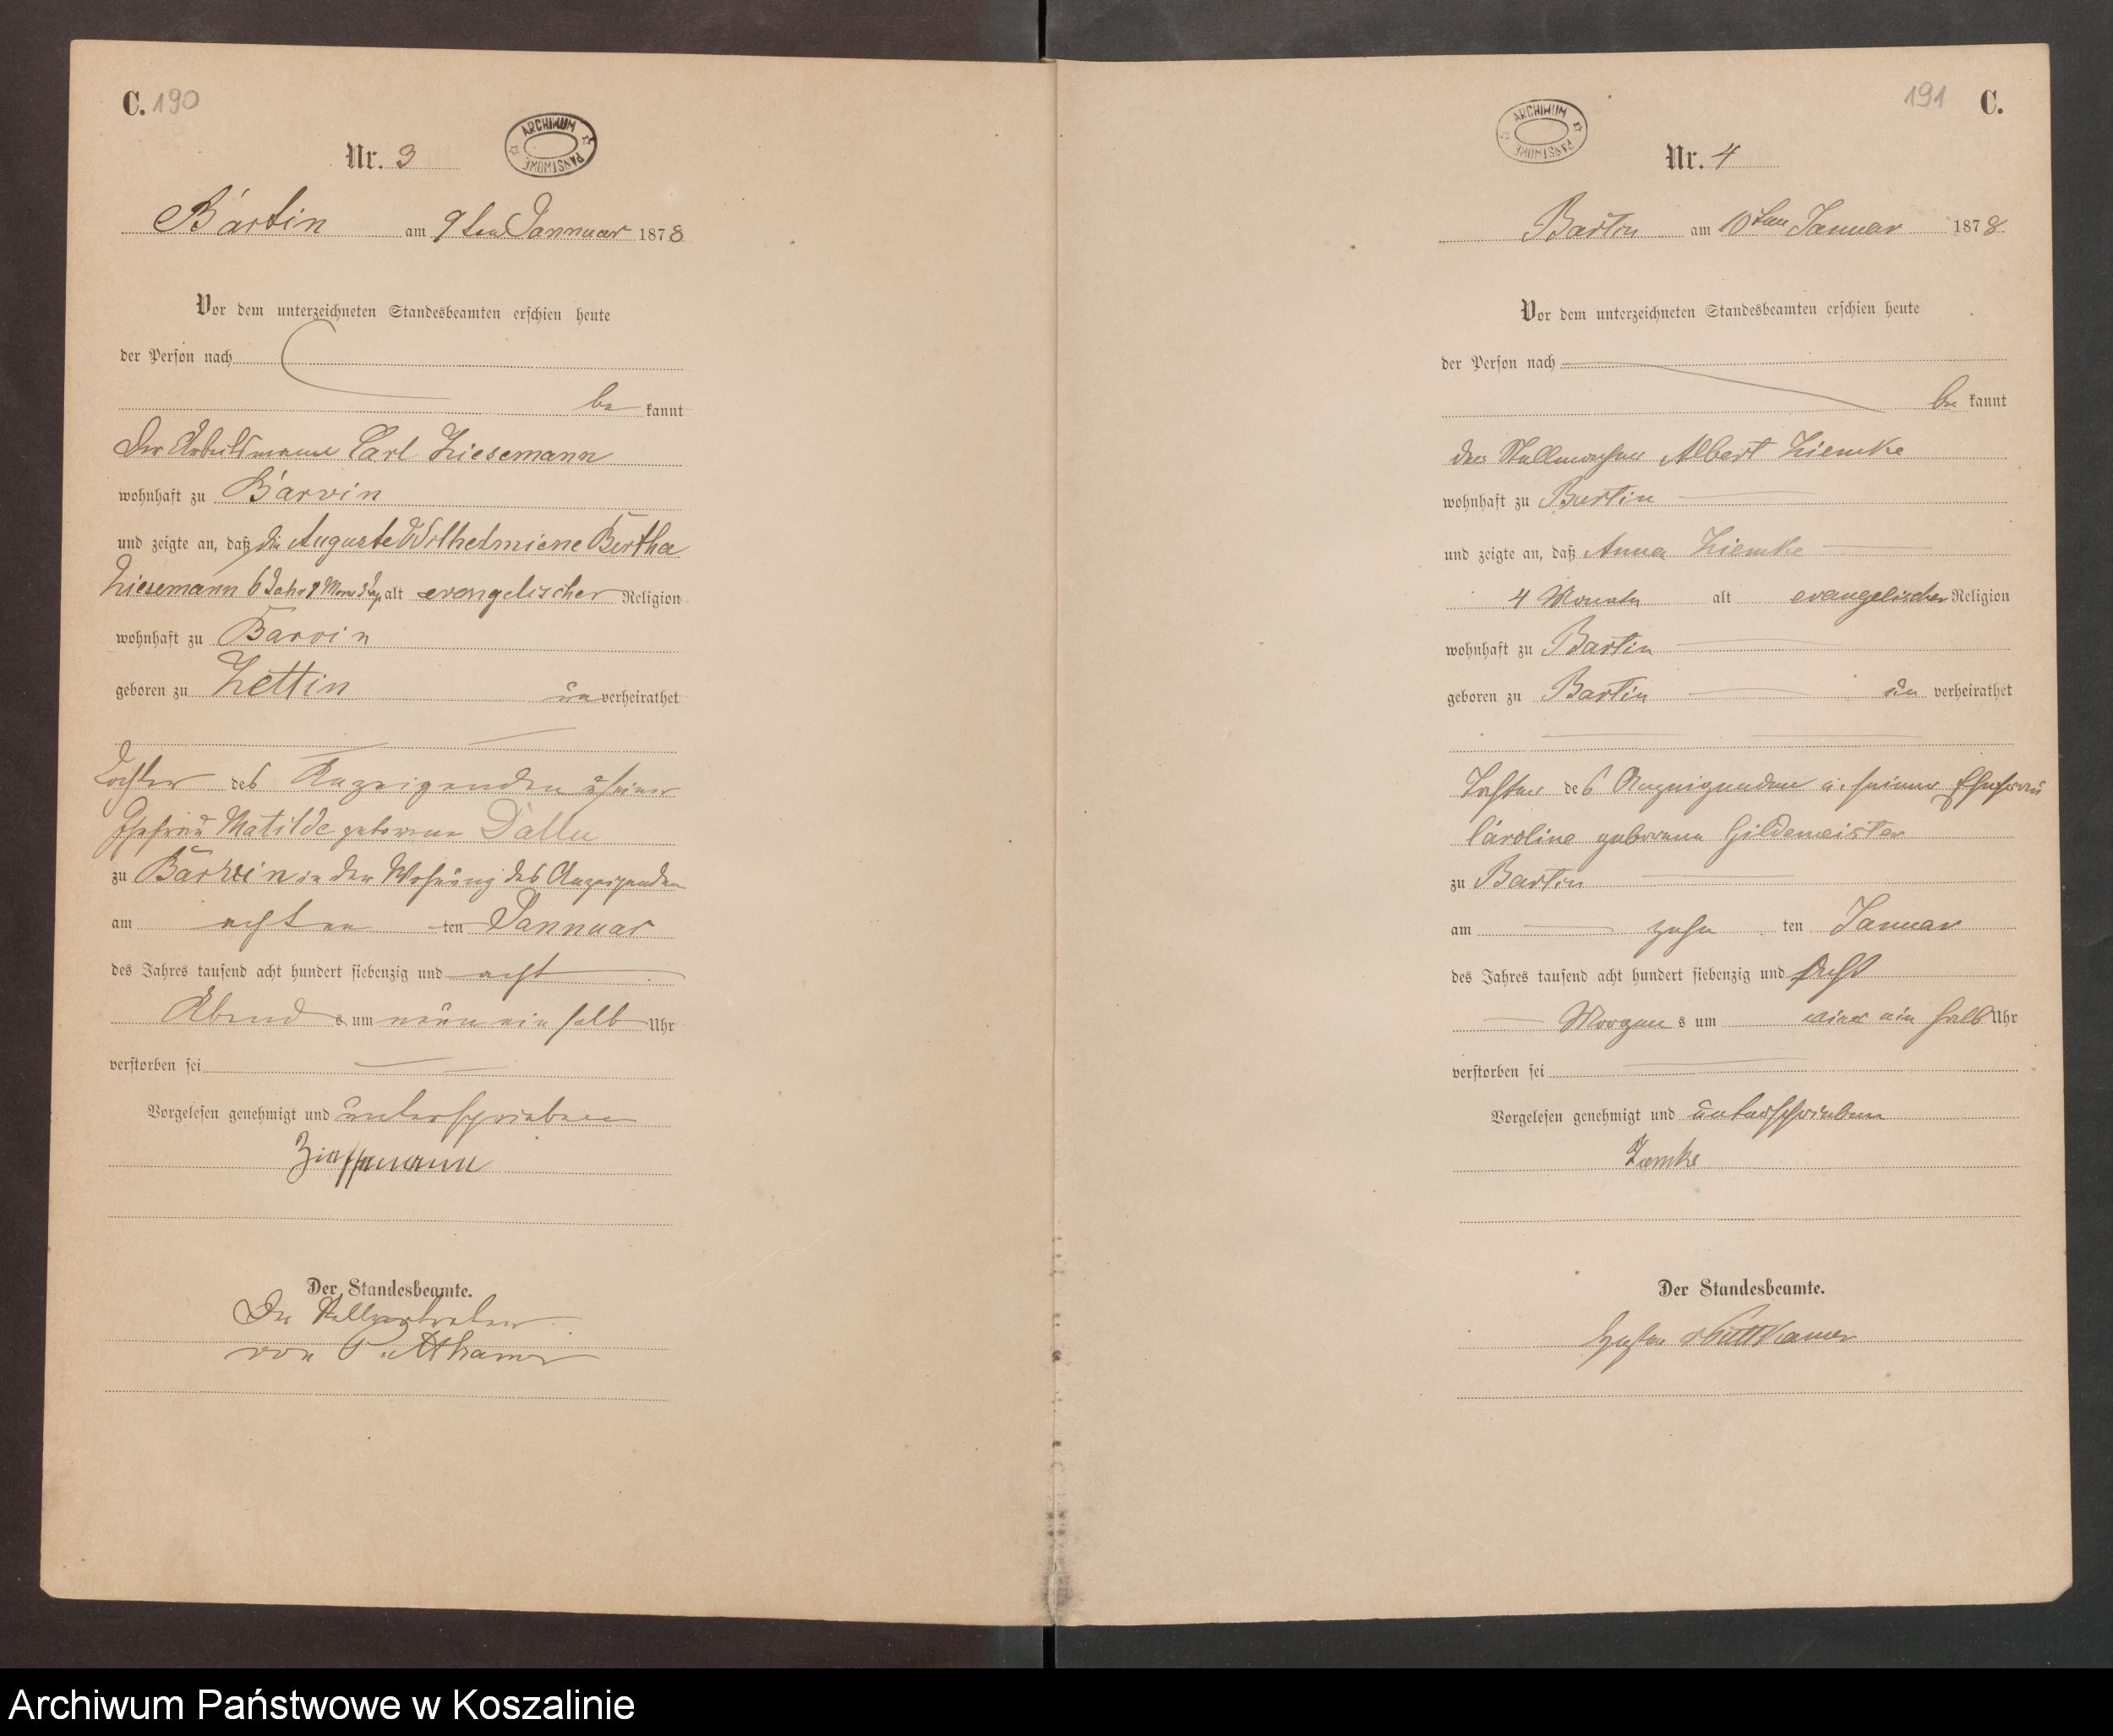 C. 190
ARCHIWUM PAŃSTWOWE
Nr. 3
Bartin am 9ten Jannuar 1878
Vor dem unterzeichneten Standesbeamten erschien heute
der Person nach
be kannt
Der Arbeitsmann Carl Ziesemann
wohnhaft zu Barvin
und zeigte an, daß die Auguste Wilhelmiene Bertha
Ziesemann 6 Jahr alt evangelischer Religion
wohnhaft zu Barvin
geboren zu Zettin un verheirathet
Tochter des Anzeigenden u seiner
Ehefrau Matilde geborene
zu Barvin in der Wohnung des Anzeigenden
am achten ten Jannuar
des Jahres tausend acht hundert siebenzig und acht
Abend s um neun ein halb Uhr
verstorben sei
Vorgelesen genehmigt und unterschrieben
Ziesemann
Der Standesbeamte.
Der Stellvertreter
von Puttkamer
191 C.
ARCHIWUM PAŃSTWOWE
Nr. 4
Bartin am 10ten Januar 1878
Vor dem unterzeichneten Standesbeamten erschien heute
der Person nach
be kannt
der Stellmacher Albert Ziemke
wohnhaft zu Bartin
und zeigte an, daß Anna Ziemke
4 Monate alt evangelischer Religion
wohnhaft zu Bartin
geboren zu Bartin un verheirathet
Tochter des Anzeigenden u. seiner Ehefrau
Caroline geborene Gildemeister
zu Bartin
am zehn ten Januar
des Jahres tausend acht hundert siebenzig und acht
Morgen s um ein halb Uhr
verstorben sei
Vorgelesen genehmigt und unterschrieben
Ziemke
Der Standesbeamte.
Puttkamer
Archiwum Państwowe w Koszalinie